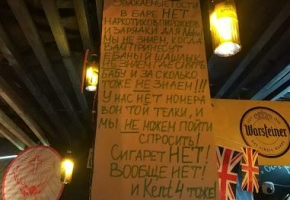 В БАРЕ НЕТ
НАРКОТИКОВ,
И ЗАРЯДКИ ДЛЯ
МЫ НЕ ЗНАЕМ, КОГДА
ВАМ ПРИНЕСУТ
ШАШЛЫК
НЕ ЗНАЕМ, ГДЕ СНЯТЬ
БАБУ И ЗА СКОЛЬКО
ТОЖЕ НЕ ЗНАЕМ!!!
У НАС НЕТ НОМЕРА
ВОН ТОЙ ТЕЛКИ, И
МЫ НЕ МОЖЕМ ПОЙТИ
СПРОСИТЬ!
СИГАРЕТ НЕТ!
ВООБЩЕ НЕТ!
И Kent 4 ТОЖЕ!
Warsteiner